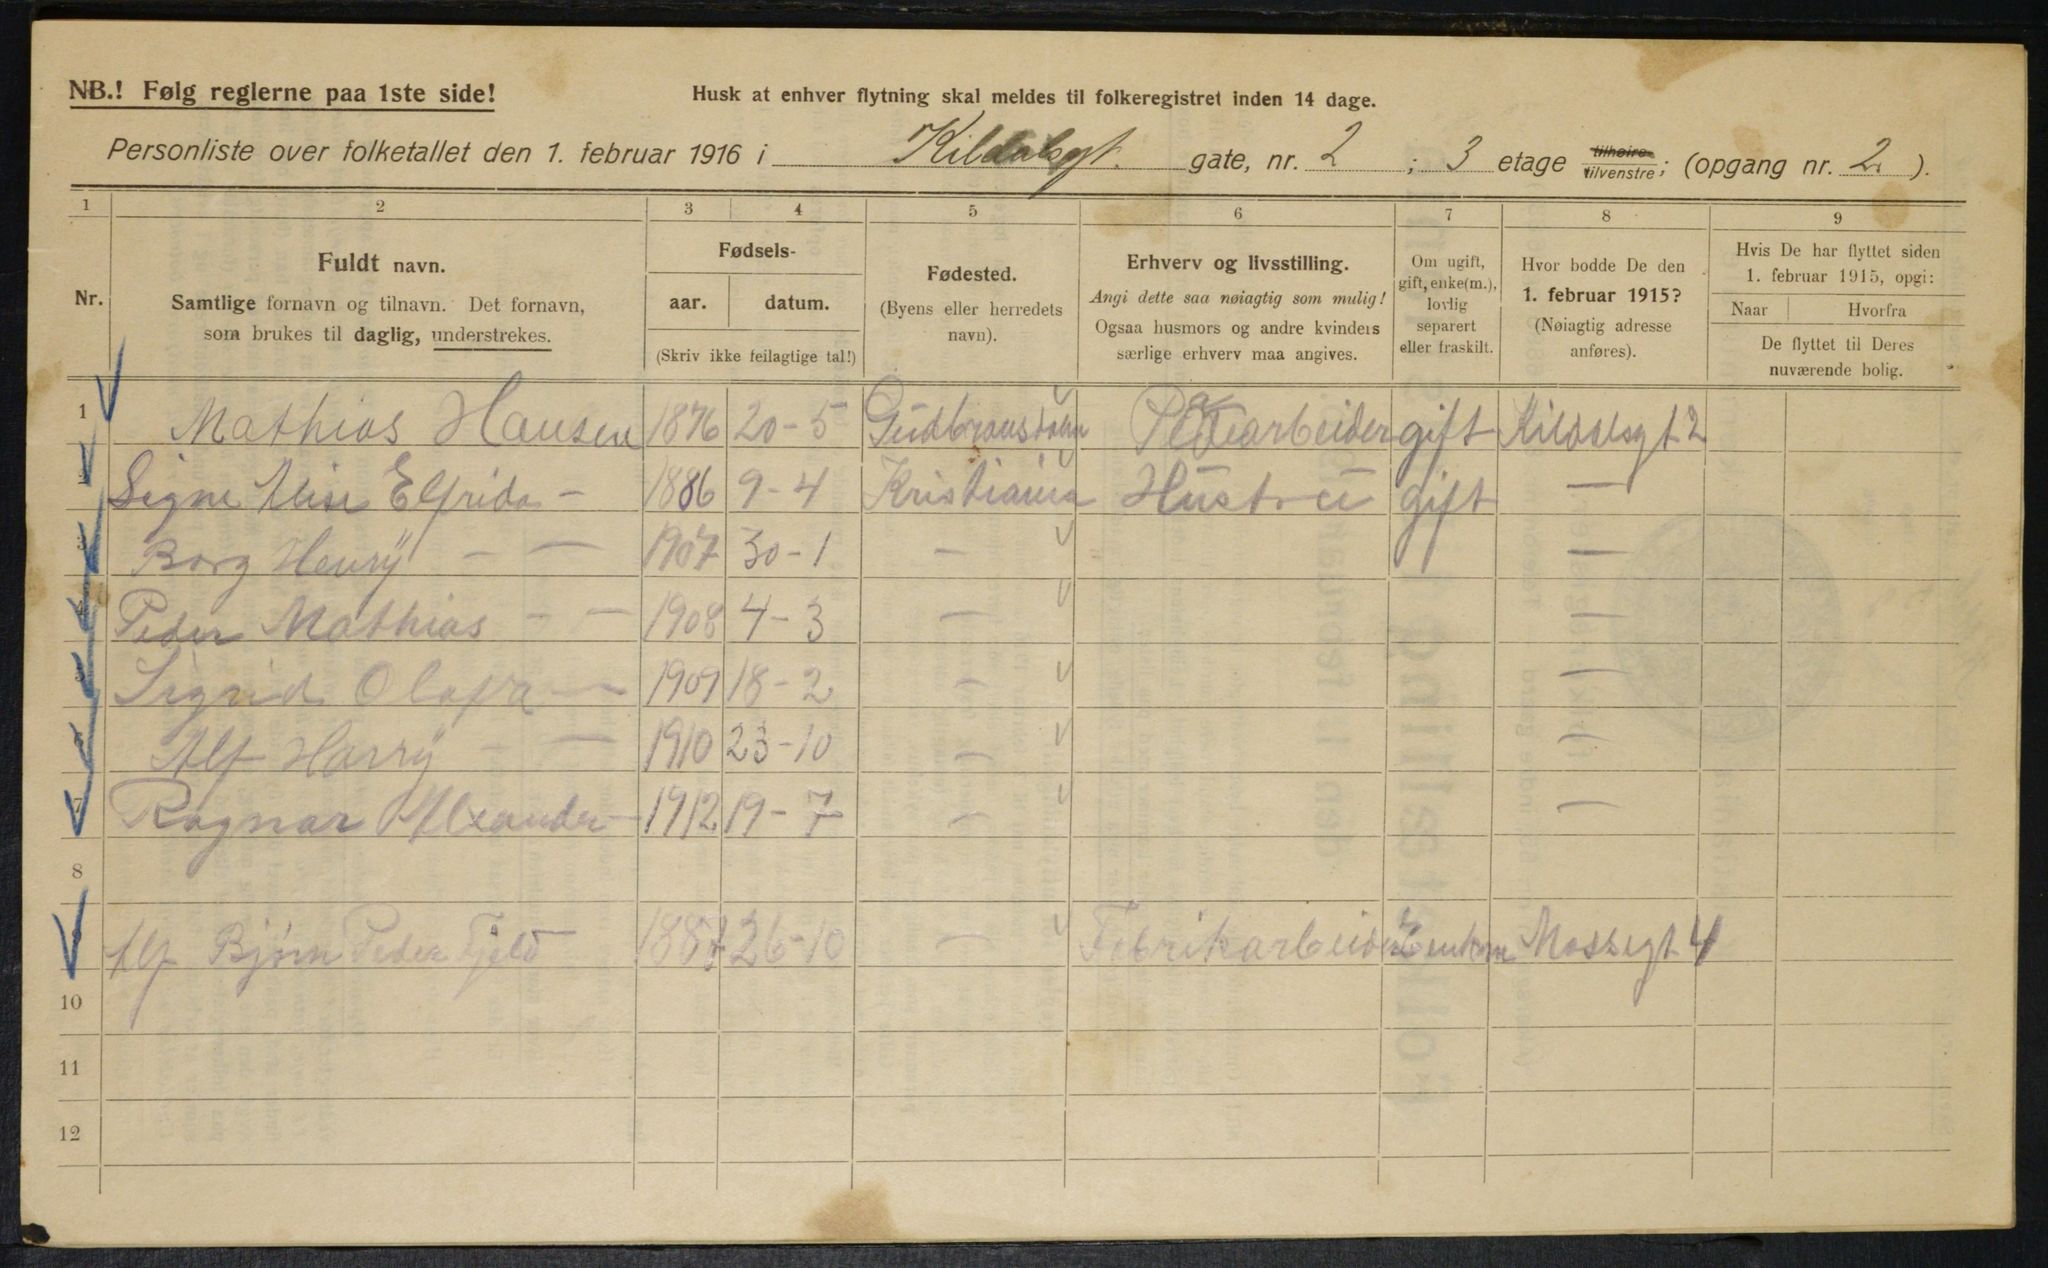 NB.! Følg reglerne paa 1ste side!
Husk at enhver flytning skal meldes til folkeregistret inden 14 dage.
Personliste over folketallet den 1. februar 1916 i Kildalsgt. gate, nr. 2 ; 3 etage tilhøire tilvenstre; (opgang nr. 2 ).
1 2 3 4 5 6 7 8 9
Nr.
Fuldt navn.
Samtlige fornavn og tilnavn. Det fornavn,
som brukes til daglig, understrekes.
Fødsels-
aar. datum.
(Skriv ikke feilagtige tal!)
Fødested.
(Byens eller herredets
navn).
Erhverv og livsstilling.
Angi dette saa nøiagtig som mulig!
Ogsaa husmors og andre kvinders
særlige erhverv maa angives.
Om ugift,
gift, enke(m.),
lovlig
separert
eller fraskilt.
Hvor bodde De den
1. februar 1915?
(Nøiagtig adresse
anføres).
Hvis De har flyttet siden
1. februar 1915, opgi:
Naar Hvorfra
De flyttet til Deres
nuværende bolig.
1 Mathias Hansen 1876 20-5 gift Kildalsgt 2
Signe Elfrida - 1886 9-4 Kristiania Hustru gift —
Borg Henry - — 1907 30-1 — —
Peder Mathias - — 1908 4-3 — —
Sigrid Olafa — 1909 18-2 — —
Alf Harry - — 1910 23-10 — —
7 Ragnar Alexander - 1912 19-7 — —
8
9 Alf Bjørn Peder Fjeld 1887 26-10 — Fabrikarbeider Mossegt 4
10
11
12